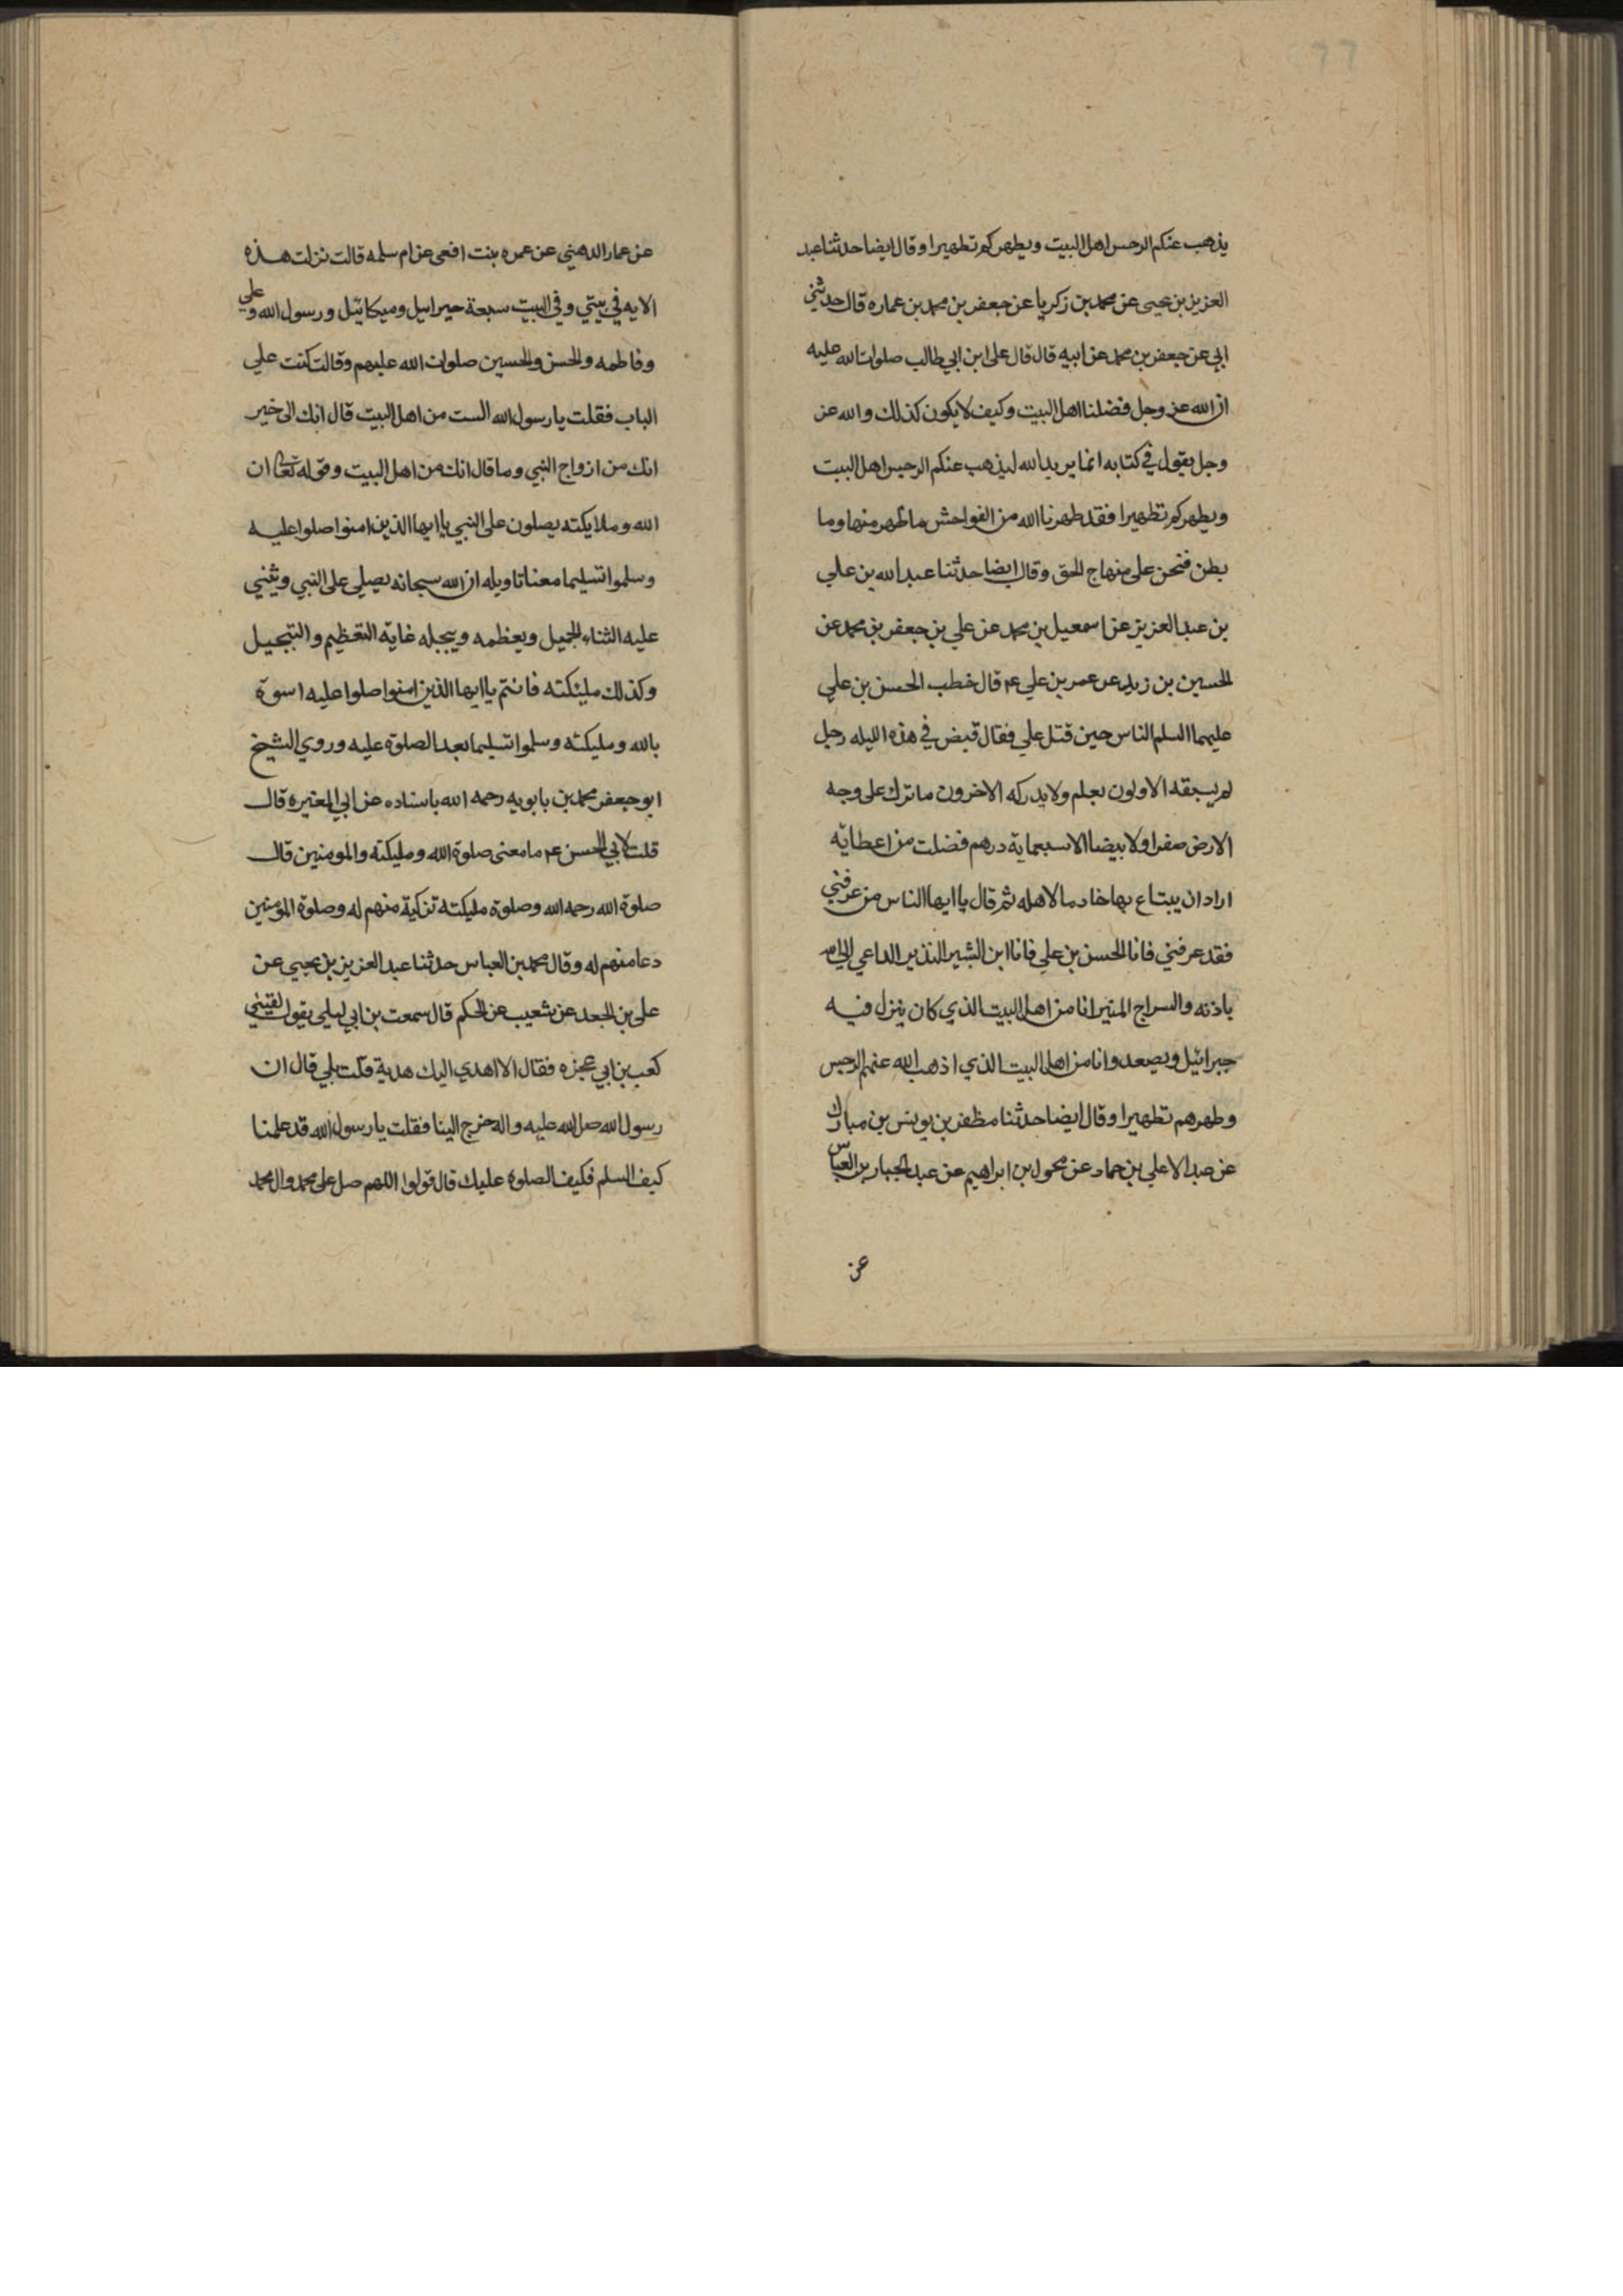 يذهب عنكم الرجس اهل البيت ويطهركم تطهيرا وقال ايضا حدثنا عبد
العزيز بن يحيى عن محمد بن زكريا عن جعفر بن محمد بن عماره قال حدثني
ابي عن جعفر بن محمد عن ابيه قال قال علي ابن ابي طالب صلوات الله عليه
ان الله عز وجل فضلنا اهل البيت وكيف لا يكون كذلك والله عز
وجل يقول في كتابه انما يريد الله ليذهب عنكم الرجس اهل البيت
ويطهركم تطهيرا فقد طهرنا الله من الفواحش ما ظهر منها وما
بطن فنحن على منهاج الحق وقال ايضا حدثنا عبد الله بن علي
بن عبد العزيز عن اسمعيل بن محمد عن علي بن جعفر بن محمد عن
الحسين بن زيد عن عمر بن علي ع قال خطب الحسن بن علي
عليهما السلم الناس حين قتل علي فقال قبض في هذه الليله رجل
لم يسبقه الاولون بعلم ولا يدركه الاخرون ما ترك على وجه
الارض صفرا ولا بيضا الا سبعماية درهم فضلت من اعطايه
اراد ان يبتاع بها خادما لاهله ثم قال يا ايها الناس من عرفني
فقد عرفني فانا الحسن بن علي فانا ابن البشير النذير الداعي الى الله
باذنه والسراج المنير انا من اهل البيت الذي كان ينزل فيه
جبرائيل ويصعد وانا من اهل البيت الذي اذهب الله عنهم الرجس
وطهرهم تطهيرا وقال ايضا حدثنا مظفر بن يونس بن مبارك
عن عبد الاعلي بن حماد عن مخول بن ابراهيم عن عبد الجبار بن العباس
عن
عن عمار الدهني عن عمره بنت افعى عن ام سلمه قالت نزلت هذه
الايه في بيتي وفي البيت سبعة جبراييل وميكائيل ورسول الله وعلي
وفاطمه والحسن والحسين صلوات الله عليهم وقالت كنت علي
الباب فقلت يا رسول الله الست من اهل البيت قال انك الى خير
انك من ازواج النبي وما قال انك من اهل البيت وقوله تعالى ان
الله وملايكته يصلون على النبي يا ايها الذين امنوا صلوا عليه
وسلموا تسليما معنا تاويله ان الله سبحانه يصلي على النبي ويثني
عليه الثناء الجميل ويعظمه ويبجله غاية التعظيم والتبجيل
وكذلك مليكته فانتم يا ايها الذين امنوا صلوا عليه اسوة
بالله ومليكته وسلموا تسليما بعد الصلوة عليه وروي الشيخ
ابو جعفر محمد بن بابويه رحمه الله باسناده عن ابي المغيره قال
قلت لابي الحسن ع ما معنى صلوة الله ومليكته والمومنين قال
صلوة الله رحمه الله وصلوة مليكته تزكية منهم له وصلوة المؤمنين
دعا منهم له وقال محمد بن العباس حدثنا عبد العزيز بن يحيي عن
علي بن الجعد عن شعيب عن الحكم قال سمعت بن ابي ليلي يقول لقيني
كعب بن ابي عجزه فقال الا اهدي اليك هدية قلت بلي قال ان
رسول الله صلى الله عليه واله خرج الينا فقلت يا رسول الله قد علمنا
كيف السلم فكيف الصلوة عليك قال قولوا اللهم صل على محمد وال محمد